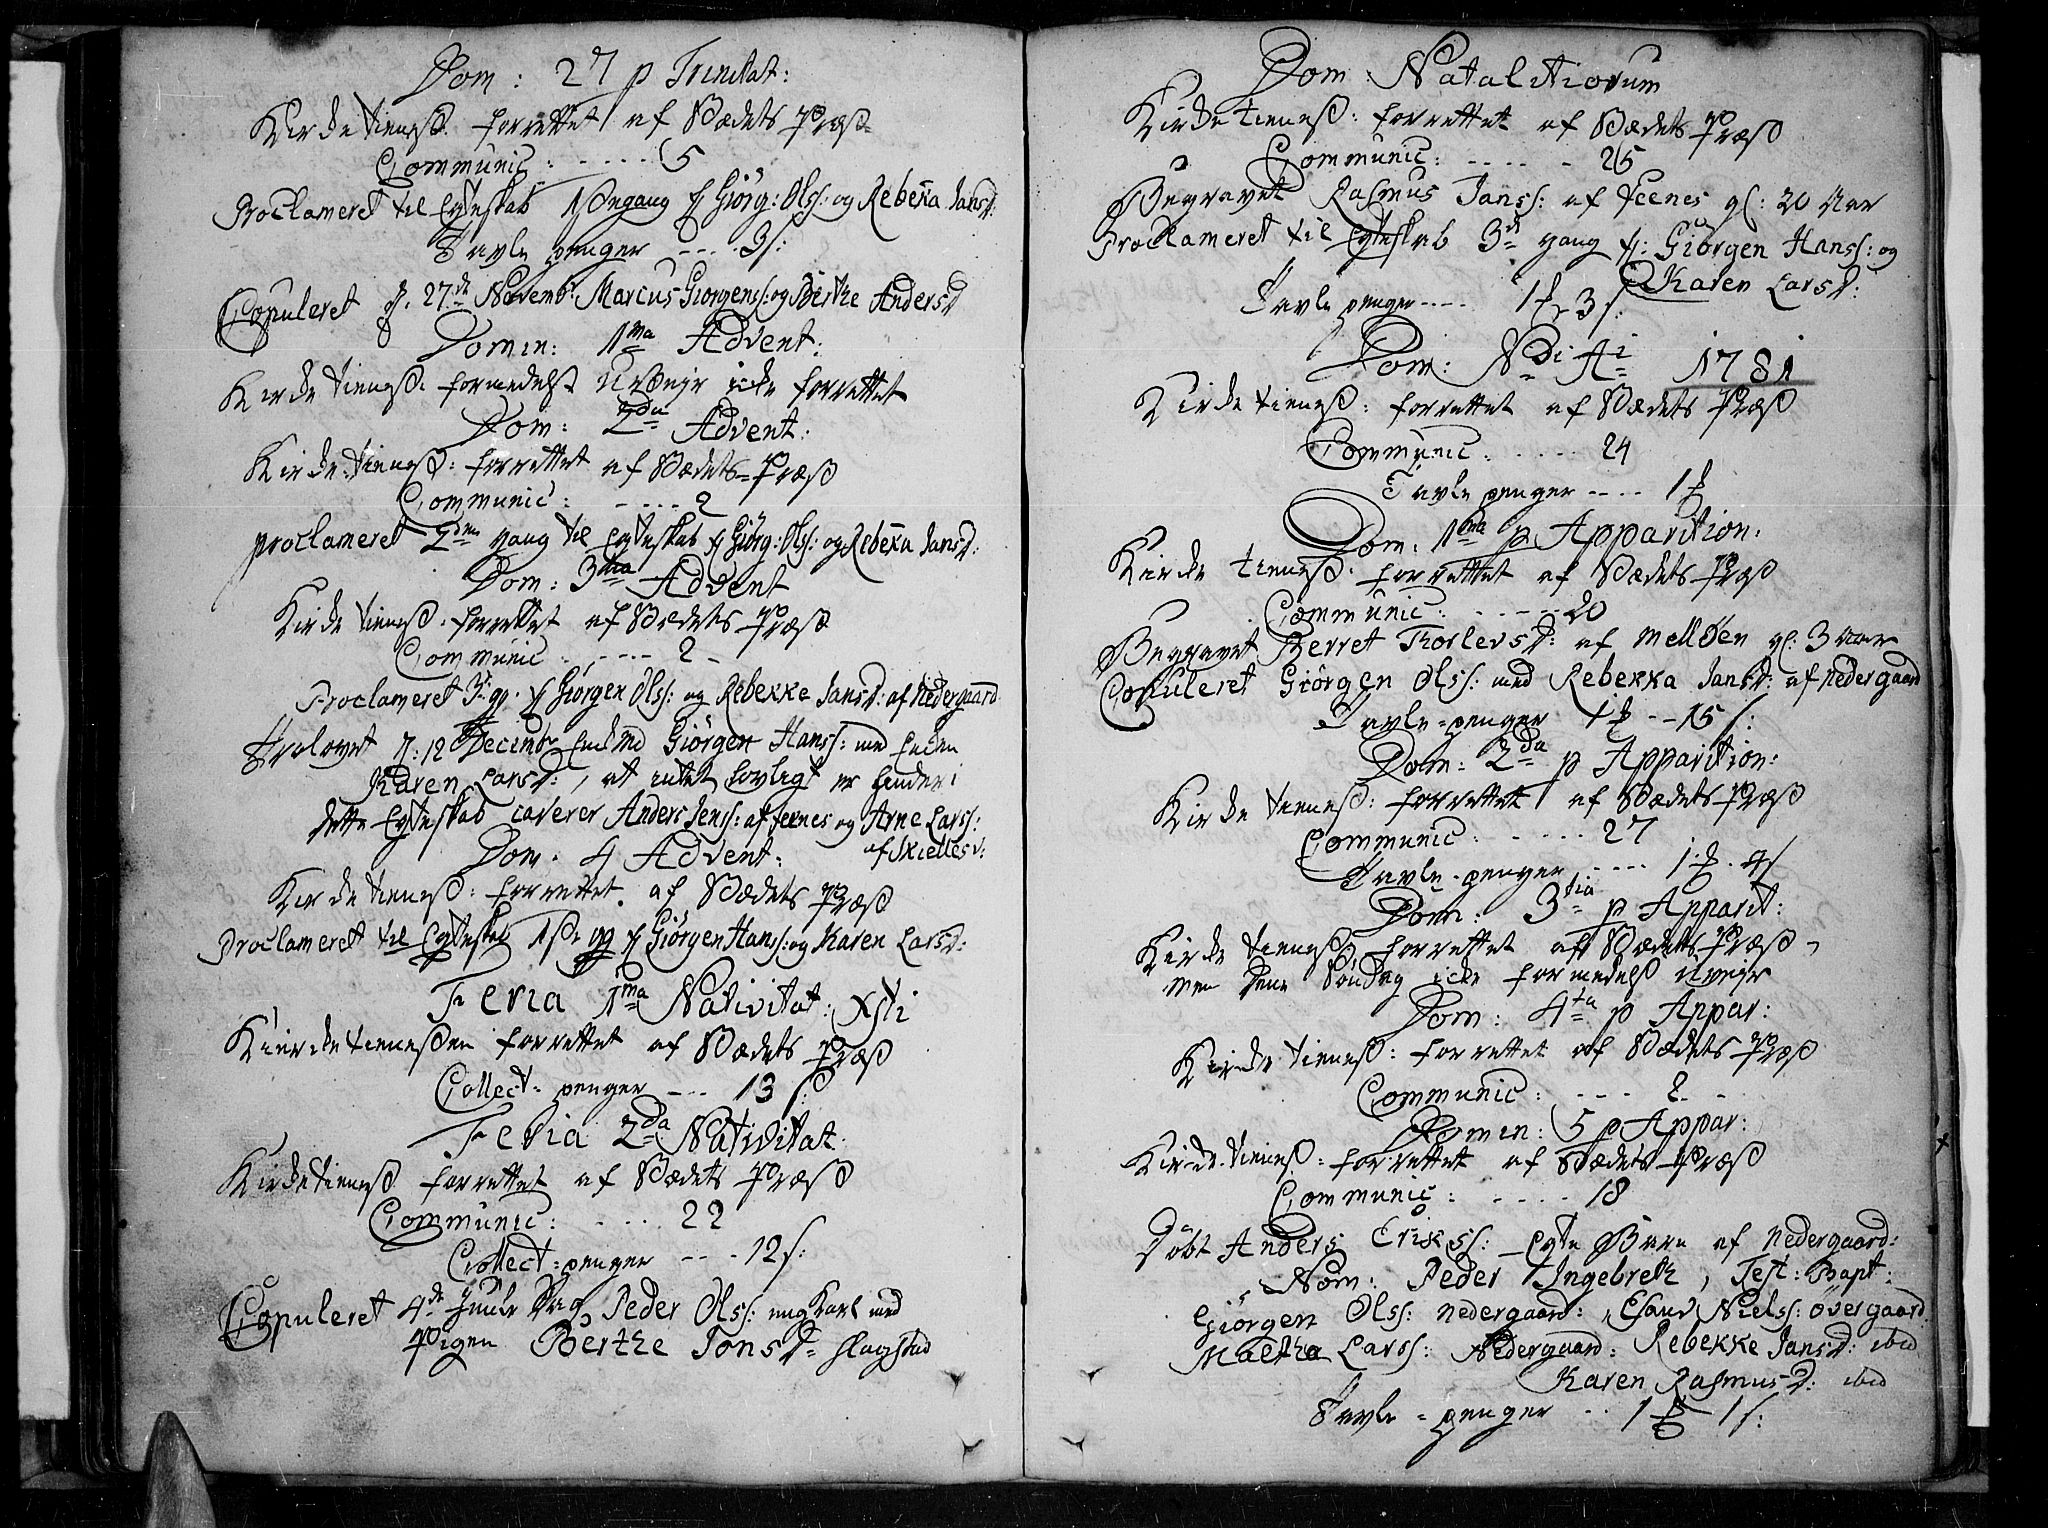 Dom: 27 p Trinitat:
Kirketienest: forrettet af Stædets Præst
Communic: - - - - - 5
Proclameret til Egteskab 1ste gang Giörg: Olss: og Rebekka Jansd:
Tavle penger - - - 3 s:
Copuleret d. 27de Novemb: Marcus Giorgenss: og Birthe Andersd
Domin: 1ma Advent:
Kirketienest: formedelst Uveyr icke forrettet
Dom: 2da Advent:
Kirketienest: forrettet af Stædets Præst
Communic: - - - - 2
proclameret 2den gang til Egteskab Giörg: Olss: og Rebekka Jansd:
Dom: 3tia Advent
Kirketienest: forrettet af Stædets Præst
Communic: - - - - 2 -
Proclameret 3: gg. Giörgen Olss: og Rebekke Jansd: af Nedergaard
Trolovet d: 12 Decembr Giörgen Hanss: med
Karen Larsd:, at intet lovligt er hinder i
dette Egteskab caverer Anders Jenss: af og Arne Larss:
af Skiellesv:
Dom. 4 Advent:
Kirketienest: forrettet af Stædets Præst
Proclameret til Egteskab 1ste gg Giörgen Hanss: og Karen Larsd:
Feria 1ma Nativitat: Xsti
Kierketienesten forrettet af Stædets Præst
Collect-penger - - - 13 s:
Feria 2da Nativitat:
Kirketienest forrettet af Stædets Præst
Communic: - - - - 22
Collect-penger - - - 12 s:
Copuleret 4de Juule Dag Peder Olss: ung Karl med
Pigen Berthe Jonsd: Slagstad
Dom: Natalitiorum
Kirketienest: forrettet af Stædets Præst
Communic: - - - - - 25
Begravet Rasmus Janss: af gl: 20 Aar
Proclameret til Egteskab 3de gang Giörgen Hanss: og
Karen Larsd:
Tavle penger - - - - 1 3 s:
Dom: Ndi Ai 1781
Kirketienest: forrettet af Stædets Præst
Communic: - - - - - 24
Tavle penger - - - - 1
Dom: 1ma p Apparition:
Kirketienest: forrettet af Stædets Præst
Communic: - - - - - 20
Begravet Berret Thorlevsd: af Melløen gl: 3 Aar
Copuleret Giörgen Olss: med Rebekka Jansd: af Nedergaard
Tavle-penger 1 - - 15 s:
Dom: 2da p Apparition:
Kirketienest: forrettet af Stædets Præst
Communic: - - - - - 27
Tavle-penger - - - - 1 4 s
Dom: 3tia p Apparit:
Kirketienest: forrettet af Stædets Præst,
men denne Søndag icke formedelst Uveyr
Dom: 4ta p Appar:
Kirketienest: forrettet af Stædets Præst
Communic: - - - - 2 -
Domin: 5 p Appar:
Kirketienest: forrettet af Stædets Præst
Communic: - - - - 18
Døbt Anders Erikss: Egte Barn af Nedergaard:
Nom: Peder Ingebreth, Test: Bapt:
Giörgen Olss: Nedergaard: Nielss: Övergaard
Larss: Nedergaard: Rebekke Jansd: ibid
Karen Rasmusd: ibid
Tavle-penger - - 1 1 s: